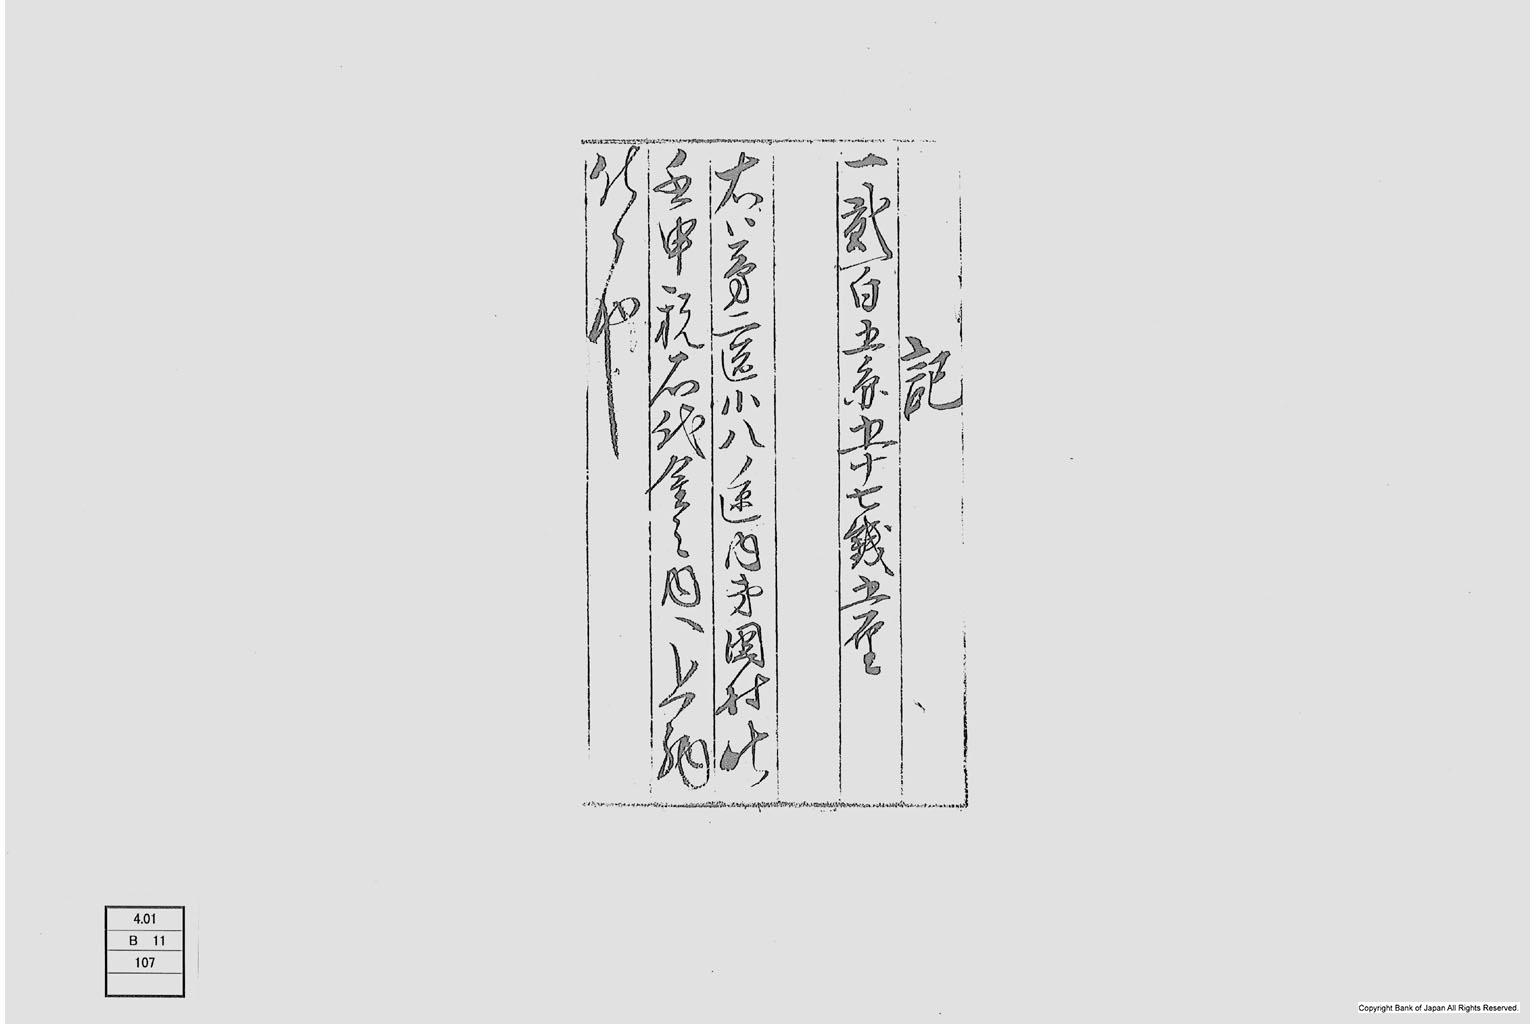 記
一 貳百五兩五十七錢五厘
右ハ第二區小八ノ區内東國村
壬申税石代金之内へ上納
仕候也
4.01
B 11
107
Copyright Bank of Japan All Rights Reserved.